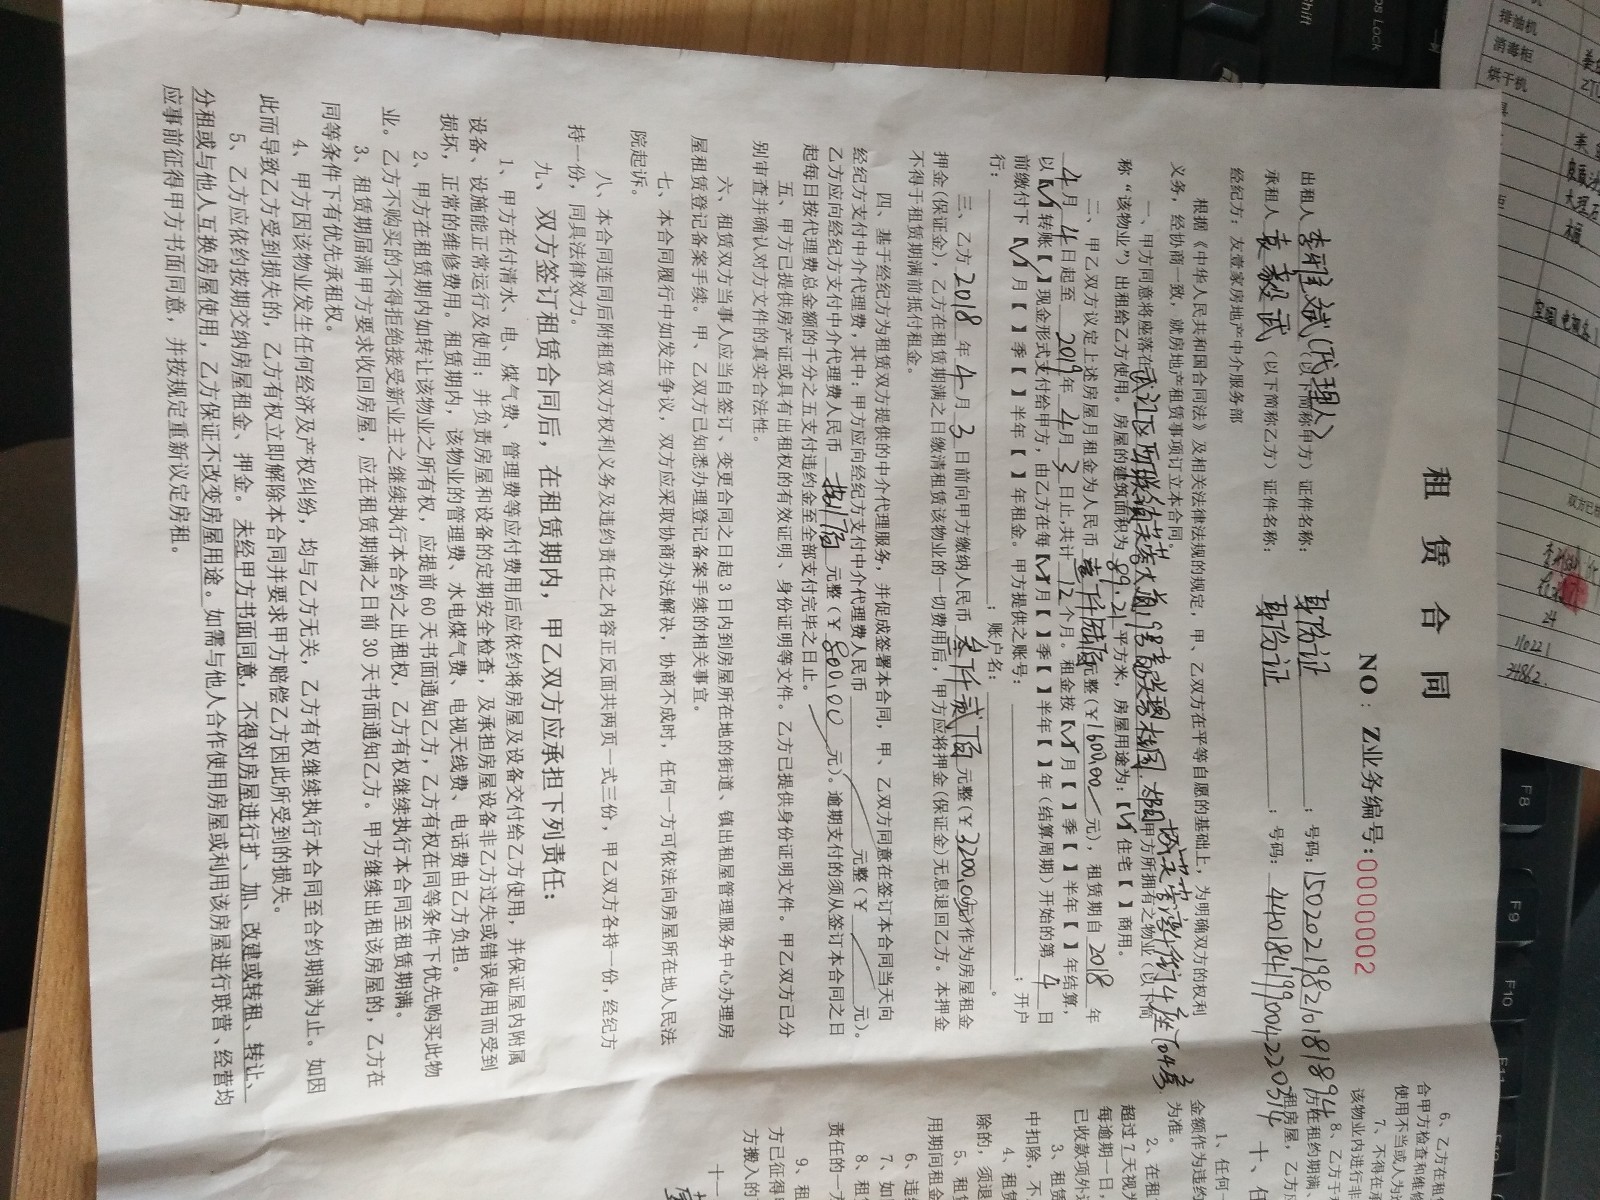 租 赁 合 同
NO：Z业务编号:0000002
出租人 李雅斌(代理人) （以下简称甲方）证件名称： 身份证 ；号码：150202198210181894
承租人 袁毅武 （以下简称乙方）证件名称： 身份证 ；号码：440184199004220314
经纪方：友壹家房地产中介服务部
根据《中华人民共和国合同法》及相关法律法规的规定，甲、乙双方在平等自愿的基础上，为明确双方的权利
义务，经协商一致，就房地产租赁事项订立本合同。
一、甲方同意将座落在 甲方所拥有之物业（以下简
称“该物业”）出租给乙方使用。房屋的建筑面积为 89.21 平方米，房屋用途为：【√】住宅【 】商用。
二、甲乙双方议定上述房屋月租金为人民币 壹仟陆佰 元整（￥1600.00 元），租赁期自 2018 年
4 月 4 日起至 2019 年 4 月 3 日止,共计 12 个月。租金按【√】月【 】季【 】半年【 】年结算，
以【√】转账【 】现金形式支付给甲方，由乙方在每【√】月【 】季【 】半年【 】年（结算周期）开始的第 4 日
前缴付下【√】月【 】季【 】半年【 】年租金。甲方提供之账号： ；开户
行： ；账户名： 。
三、乙方 2018 年 4 月 3 日前向甲方缴纳人民币 叁仟贰佰 元整（￥3200.00元）作为房屋租金
押金（保证金），乙方在租赁期满之日缴清租赁该物业的一切费用后，甲方应将押金（保证金）无息退回乙方。本押金
不得于租赁期满前抵付租金。
四、基于经纪方为租赁双方提供的中介代理服务，并促成签署本合同，甲、乙双方同意在签订本合同当天向
经纪方支付中介代理费，其中：甲方应向经纪方支付中介代理费人民币 元整（￥ 元）。
乙方应向经纪方支付中介代理费人民币 捌佰 元整（￥800.00 元）。逾期支付的须从签订本合同之日
起每日按代理费总金额的千分之五支付违约金至全部支付完毕之日止。
五、甲方已提供房产证或具有出租权的有效证明、身份证明等文件。乙方已提供身份证明文件。甲乙双方已分
别审查并确认对方文件的真实合法性。
六、租赁双方当事人应当自签订、变更合同之日起3日内到房屋所在地的街道、镇出租屋管理服务中心办理房
屋租赁登记备案手续。甲、乙双方已知悉办理登记备案手续的相关事宜。
七、本合同履行中如发生争议，双方应采取协商办法解决，协商不成时，任何一方可依法向房屋所在地人民法
院起诉。
八、本合同连同后附租赁双方权利义务及违约责任之内容正反面共两页一式三份，甲乙双方各持一份，经纪方
持一份，同具法律效力。
九、双方签订租赁合同后，在租赁期内，甲乙双方应承担下列责任：
1、甲方在付清水、电、煤气费、管理费等应付费用后应依约将房屋及设备交付给乙方使用，并保证屋内附属
设备、设施能正常运行及使用；并负责房屋和设备的定期安全检查，及承担房屋设备非乙方过失或错误使用而受到
损坏，正常的维修费用。租赁期内，该物业的管理费、水电煤气费、电视天线费、电话费由乙方负担。
2、甲方在租赁期内如转让该物业之所有权，应提前60天书面通知乙方，乙方有权在同等条件下优先购买此物
业。乙方不购买的不得拒绝接受新业主之继续执行本合约之出租权，乙方有权继续执行本合同至租赁期满。
3、租赁期届满甲方要求收回房屋，应在租赁期满之日前30天书面通知乙方。甲方继续出租该房屋的，乙方在
同等条件下有优先承租权。
4、甲方因该物业发生任何经济及产权纠纷，均与乙方无关，乙方有权继续执行本合同至合约期满为止。如因
此而导致乙方受到损失的，乙方有权立即解除本合同并要求甲方赔偿乙方因此所受到的损失。
5、乙方应依约按期交纳房屋租金、押金。未经甲方书面同意，不得对房屋进行扩、加、改建或转租、转让、
分租或与他人互换房屋使用，乙方保证不改变房屋用途。如需与他人合作使用房屋或利用该房屋进行联营、经营均
应事前征得甲方书面同意，并按规定重新议定房租。
6、乙方在租
合甲方检查和维修
使用不当或人为
7、不得在
该物业内进行非
8、乙方于
房屋，乙方
十、任
1、任何
金额作为违约
为准。
2、在租
超过7天视为
每逾期一日，
已收款项外
3、租
中扣除，不
4、租赁
除的，须退
5、租
用期间租金
6、违
7、如
8、租
责任的一方
9、租
方已征得
方搬入的
十一
排油机
消毒柜
烘干机
Shift
Caps Lock
F8
F9
F10
F11